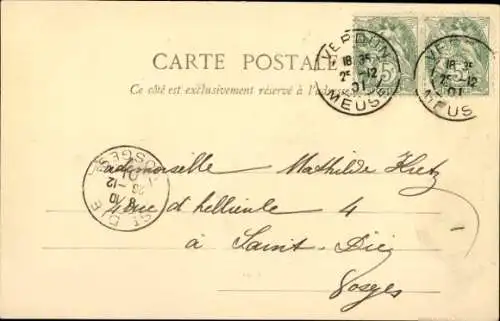 CARTE POSTALE
Ce côté est exclusivement réservé à l'adresse
VERDUN
18 35
25 -12
01
MEUSE
5
VERDUN
18 35
25 -12
01
MEUSE
Mademoiselle Mathilde Hietz
rue d 4
à Saint-Dié
Vosges
ST DIE
10
26 -12
01
VOSGES